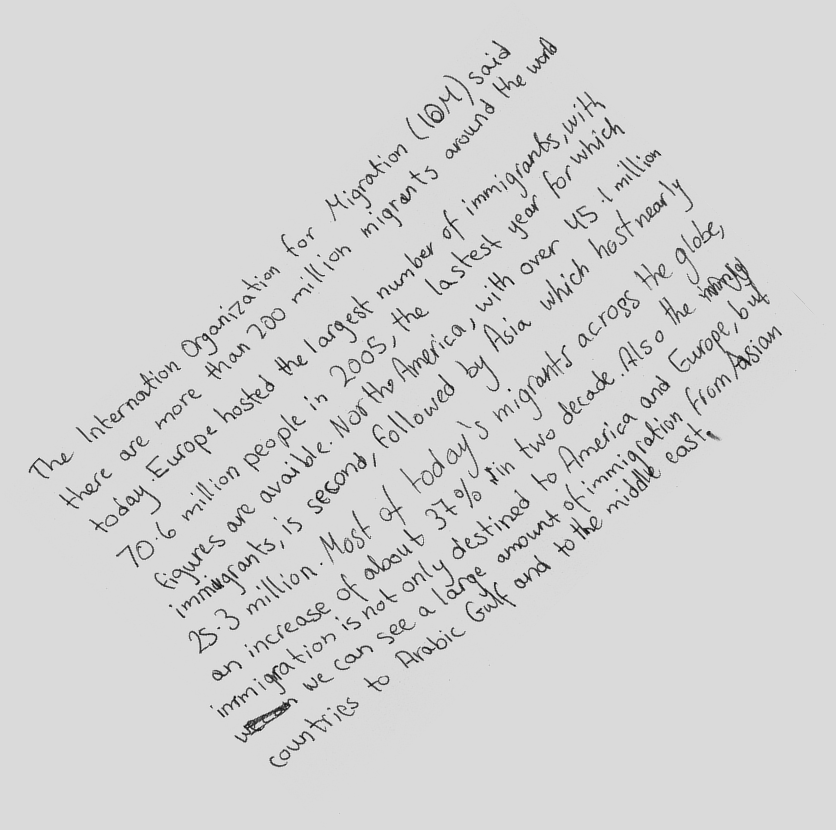 The Internation Organization for Migration (IOM) said
there are more than 200 million migrants around the world
today Europe hosted the largest number of immigrants, with
70.6 million people in 2005, the lastest year for which
figures are avaible. North America, with over 45.1 million
immigrants, is second, followed by Asia which host nearly
25.3 million. Most of today's migrants across the globe,
an increase of about 37% in two decade. Also the
immigration is not only destined to America and Europe, but
we can see a large amount of immigration from Asian
countries to Arabic Gulf and to the middle east.